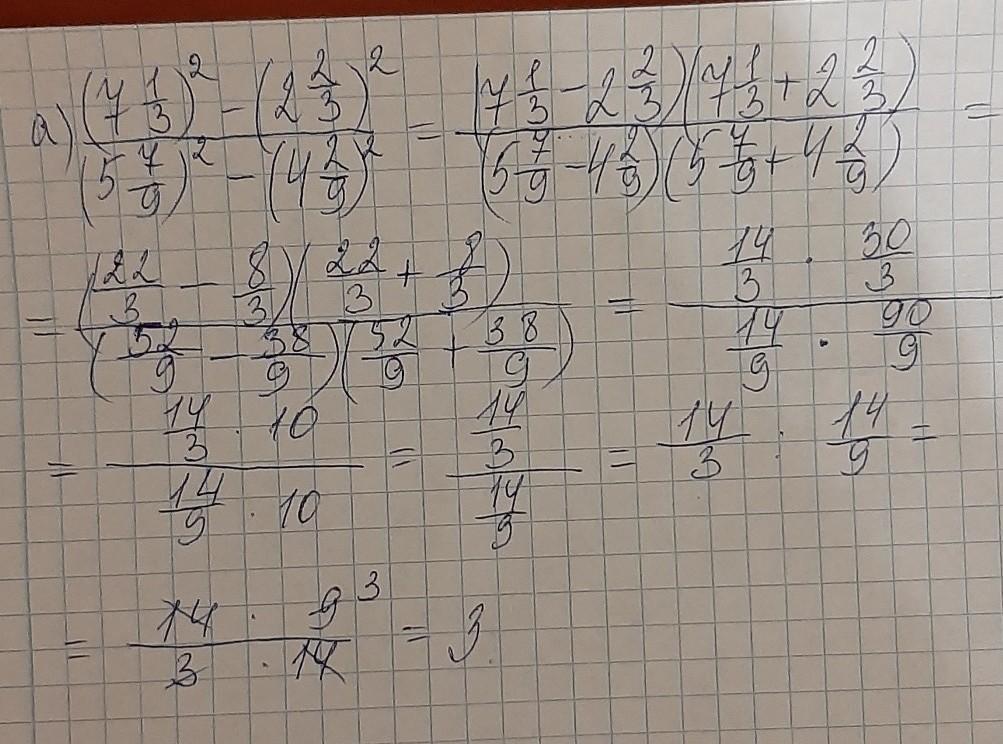 а) ((7 1/3)² − (2 2/3)²) / ((5 7/9)² − (4 2/9)²) = ((7 1/3 − 2 2/3)(7 1/3 + 2 2/3)) / ((5 7/9 − 4 2/9)(5 7/9 + 4 2/9)) =
= ((22/3 − 8/3)(22/3 + 8/3)) / ((52/9 − 38/9)(52/9 + 38/9)) = (14/3 · 30/3) / (14/9 · 90/9)
= (14/3 · 10) / (14/9 · 10) = (14/3) / (14/9) = 14/3 : 14/9 =
= (14 · 9 ³) / (3 · 14) = 3.